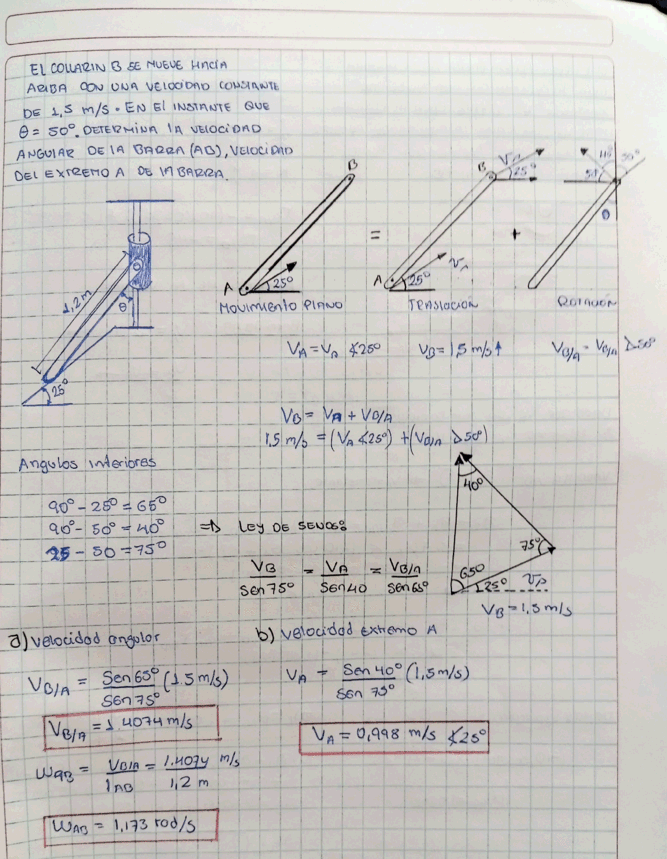 EL COLLARIN B SE MUEVE HACIA
ARIBA CON UNA VELOCIDAD CONSTANTE
DE 1,5 m/s. EN El INSTANTE QUE
θ = 50°. DETERMINA lA VELOCIDAD
ANGULAR DE LA BARRA (AB), VELOCIDAD
DEL EXTREMO A DE lA BARRA.
1,2m
θ
25°
B
A
25°
MOVIMIENTO PlANO
=
B
25°
A
25°
TRASLACIÓN
+
50°
ROTACIÓN
VA = VA ∡25°
VB = 1,5 m/s ↑
VB/A = VB/A ⊿50°
VB = VA + VB/A
1,5 m/s = (VA ∡25°) + (VB/A ⊿50°)
Angulos interiores
90° - 25° = 65°
90° - 50° = 40°
25 - 50 = 75°
⇒ LEY DE SENOS:
VB/Sen 75° = VA/Sen 40 = VB/A/Sen 65°
40°
75°
65°
25°
VA
VB = 1,5 m/s
a) Velocidad angular
VB/A = Sen 65°/Sen 75° (1.5 m/s)
VB/A = 1.4074 m/s
WAB = VB/A/lAB = 1.4074 m/s/1,2 m
WAB = 1,173 rad/s
b) Velocidad Extremo A
VA = Sen 40°/Sen 75° (1,5 m/s)
VA = 0,998 m/s ∡25°